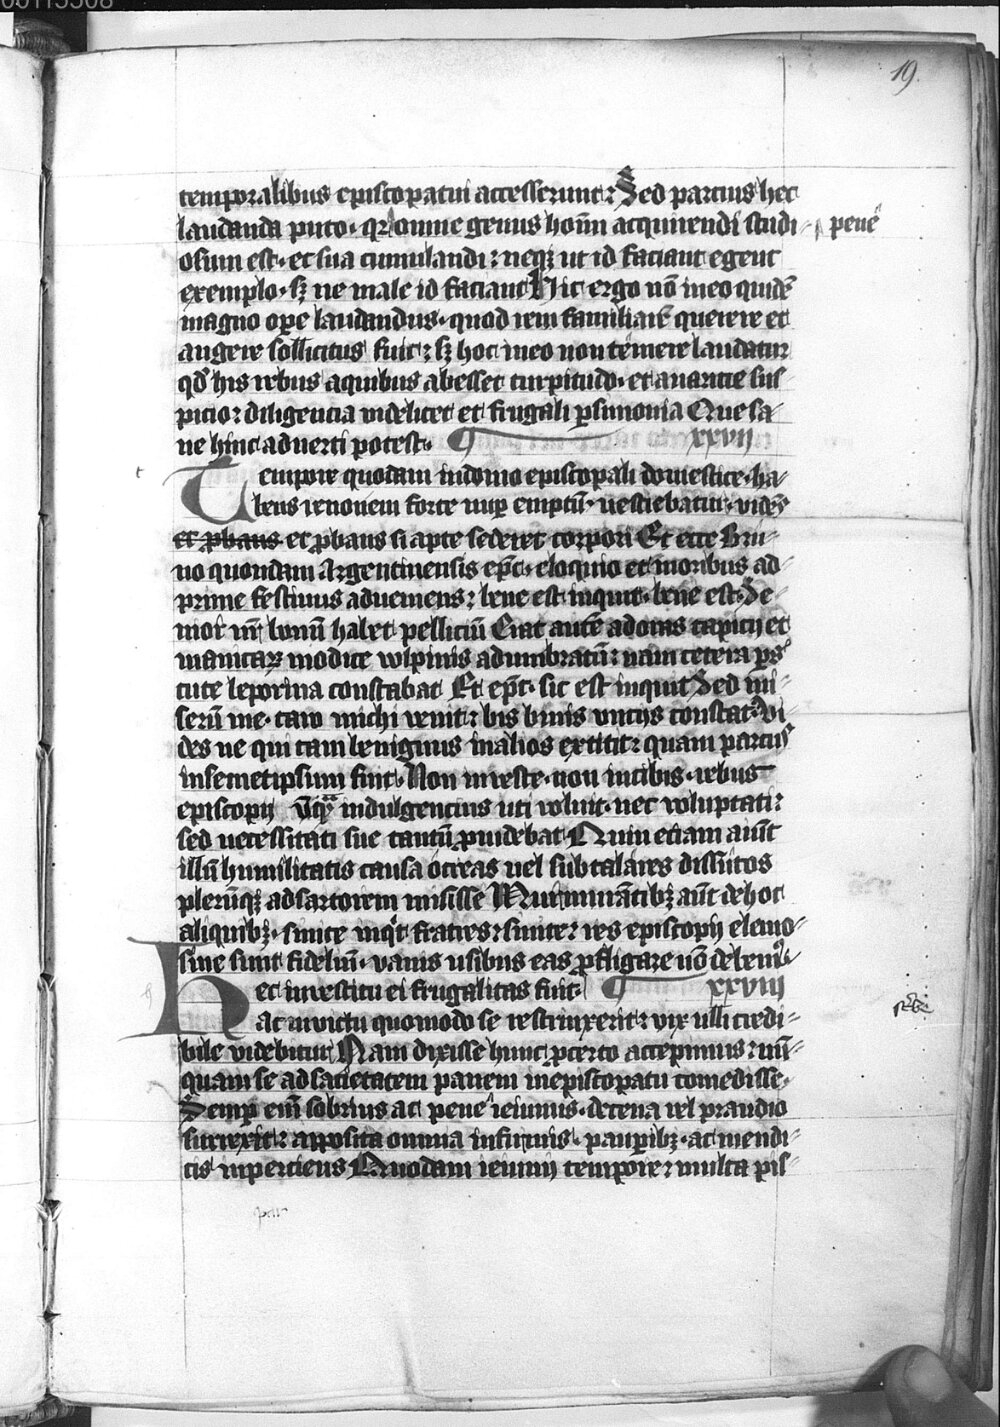 19.
temporalibus episcopatui accesserunt: Sed parcius hec
laudanda puto. qr omne genus hom̄ acquirendi studi- pene
osum est. et sua cumulandi: neqꝫ ut id faciant egent
exemplo. sꝫ ne male id faciant Hic ergo nō meo quidē
magno oꝑe laudandus. quod rem familiarē querere et
augere sollicitus fuit: sꝫ hoc meo non temere laudatur
qd̄ his rebus aquibus abesset turpitudo. et auaricie sus-
picio: diligencia videlicet et frugali ꝑsimonia Que sa-
ne hinc aduerti potest. xxvii
Tempore quodam indomo episcopali domestice. ha-
bens renonem forte nuꝑ emptū. uestiebatur. vidēs
et ꝓbans et ꝓbans si apte sederet corpori Et ecce Bru-
no quondam Argentinensis ep̄c. eloquio et moribus ad-
prime festiuus adueniens: bene est inquit. bene est. Se-
mor nr̄ bonū habet pelliciū Erat autē adoras capicij et
manicaꝝ modice vulpinis adumbratū: nam cetera ꝑs-
tute leporina constabat Et ep̄c. sic est inquit Sed mi-
serū me. caro michi venit: bis binis vncijs constat. Vi-
des ne qui tam benignus inalios extitit: quam parcus
insemetipsum fuit. Non inueste. non incibis. rebus
episcopij vn̄qua indulgencius uti voluit. nec voluptati:
sed necessitati sue tantū ꝓuidebat Quin etiam aiunt
illū humilitatis causa ocreas uel subtalares dissutos
plerūqꝫ adsartorem misisse Murmurātibꝫ aūt dehoc
aliquibꝫ. sinite inqͥt fratres: sinite: res episcopij elemo-
sine sunt fideliū. vanis usibus eas ꝓfligare nō debemꝰ.
Hec inuestitu ei frugalitas fuit. xxviii
Hac invictu quomodo se restrinxerit: vix ulli credi-
bile videbitur Nam dixisse hunc ꝓcerto accepimus: nū-
quam se adsacietatem panem inepiscopatu comedisse.
Semꝑ em̄ sobrius ac pene ieiunus. decena vel prandio
surrexit: apposita omnia infirmis. pauꝑibꝫ. ac mendi-
cis inperciens Quodam ieiunij tempore: multa pis-